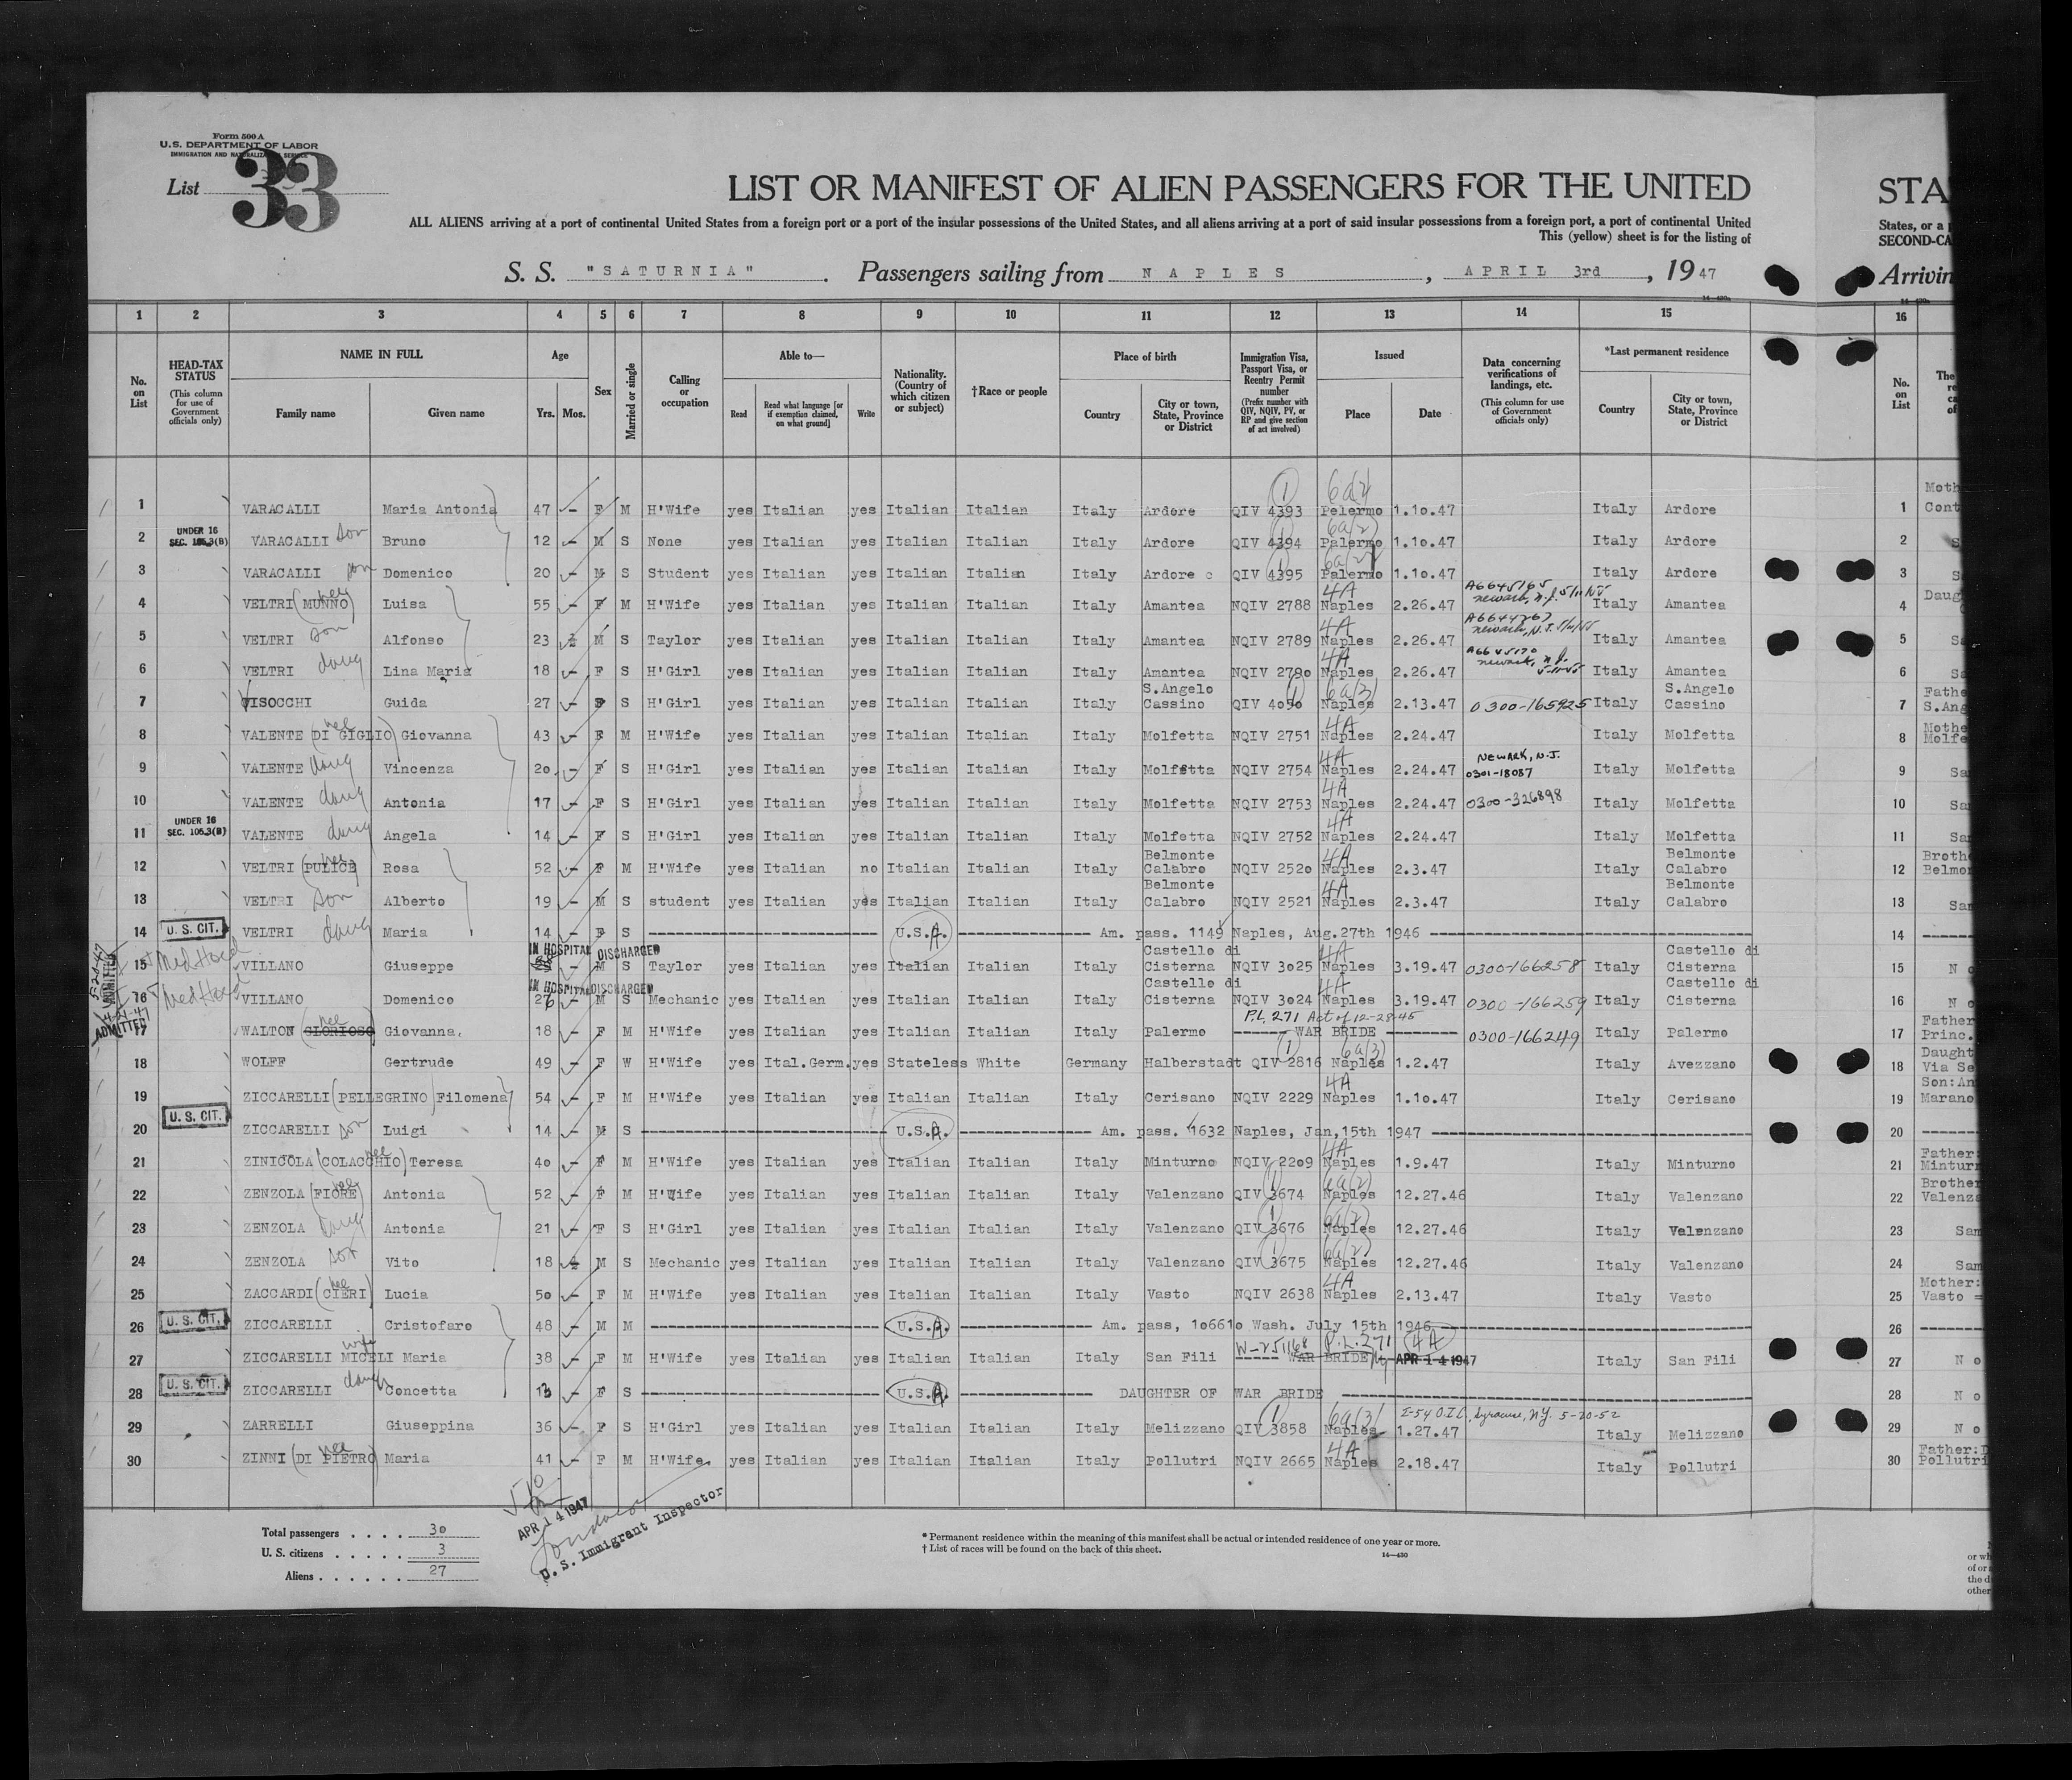 Form 500 A
U.S. DEPARTMENT OF LABOR
IMMIGRATION AND NATURALIZATION SERVICE
List 33
LIST OR MANIFEST OF ALIEN PASSENGERS FOR THE UNITED
STA
ALL ALIENS arriving at a port of continental United States from a foreign port or a port of the insular possessions of the United States, and all aliens arriving at a port of said insular possessions from a foreign port, a port of continental United
States, or a
This (yellow) sheet is for the listing of
SECOND-CA
S. S. "SATURNIA". Passengers sailing from NAPLES, APRIL 3rd, 1947
Arrivin
1 2 3 4 5 6 7 8 9 10 11 12 13 14 15 16
No. on List
HEAD-TAX STATUS (This column for use of Government officials only)
NAME IN FULL Family name Given name
Age Yrs. Mos.
Sex
Married or single
Calling or occupation
Able to— Read Read what language [or if exemption claimed, on what ground] Write
Nationality. (Country of which citizen or subject)
†Race or people
Place of birth Country City or town, State, Province or District
Immigration Visa, Passport Visa, or Reentry Permit number (Prefix number with QIV, NQIV, PV, or RP and give section of act involved)
Issued Place Date
Data concerning verifications of landings, etc. (This column for use of Government officials only)
*Last permanent residence Country City or town, State, Province or District
No. on List
1 VARACALLI Maria Antonia 47 – F M H'Wife yes Italian yes Italian Italian Italy Ardore QIV 4393 Pelermo 1.10.47 Italy Ardore 1 Moth Cont
2 UNDER 16 SEC. 105.3(B) VARACALLI son Bruno 12 – M S None yes Italian yes Italian Italian Italy Ardore QIV 4394 6a(2) Palermo 1.10.47 Italy Ardore 2 S
3 VARACALLI son Domenico 20 – M S Student yes Italian yes Italian Italian Italy Ardore QIV 4395 6a(2) Palermo 1.10.47 Italy Ardore 3 S
4 VELTRI (nee MUNNO) Luisa 55 – F M H'Wife yes Italian yes Italian Italian Italy Amantea NQIV 2788 4A Naples 2.26.47 Italy Amantea 4 Daug
5 VELTRI son Alfonso 23 M S Taylor yes Italian yes Italian Italian Italy Amantea NQIV 2789 4A Naples 2.26.47 Italy Amantea 5 Sa
6 VELTRI daug Lina Maria 18 – F S H'Girl yes Italian yes Italian Italian Italy Amantea NQIV 2790 4A Naples 2.26.47 Italy Amantea 6 Sa
7 VISOCCHI Guida 27 – S H'Girl yes Italian yes Italian Italian Italy S.Angelo Cassino QIV 4050 6a(3) Naples 2.13.47 0300-165925 Italy S.Angelo Cassino 7 Fathe S.Ang
8 VALENTE (nee DI GIGLIO) Giovanna 43 – F M H'Wife yes Italian yes Italian Italian Italy Molfetta NQIV 2751 4A Naples 2.24.47 Italy Molfetta 8 Mothe Molfe
9 VALENTE daug Vincenza 20 – F S H'Girl yes Italian yes Italian Italian Italy Molfetta NQIV 2754 4A Naples 2.24.47 NEWARK, N.J. 0301-18087 Italy Molfetta 9 Sa
10 VALENTE daug Antonia 17 – F S H'Girl yes Italian yes Italian Italian Italy Molfetta NQIV 2753 4A Naples 2.24.47 0300-326898 Italy Molfetta 10 Sa
11 UNDER 16 SEC. 105.3(B) VALENTE daug Angela 14 – F S H'Girl yes Italian yes Italian Italian Italy Molfetta NQIV 2752 4A Naples 2.24.47 Italy Molfetta 11 Sa
12 VELTRI (nee PULICE) Rosa 52 – F M H'Wife yes Italian no Italian Italian Italy Belmonte Calabro NQIV 2520 4A Naples 2.3.47 Italy Belmonte Calabro 12 Broth Belmo
13 VELTRI son Alberto 19 – M S student yes Italian yes Italian Italian Italy Belmonte Calabro NQIV 2521 4A Naples 2.3.47 Italy Belmonte Calabro 13 Sa
14 U.S. CIT. VELTRI daug Maria 14 – F S U.S.A. Am. pass. 1149 Naples, Aug.27th 1946 14
15 Med Hold VILLANO Giuseppe IN HOSPITAL DISCHARGED M S Taylor yes Italian yes Italian Italian Italy Castello di Cisterna NQIV 3025 4A Naples 3.19.47 0300-166258 Italy Castello di Cisterna 15 N o
16 Med Hold VILLANO Domenico IN HOSPITAL DISCHARGED M S Mechanic yes Italian yes Italian Italian Italy Castello di Cisterna NQIV 3024 4A Naples 3.19.47 0300-166259 Italy Castello di Cisterna 16 N o
ADMITTED
17 WALTON (nee GLORIOSO) Giovanna 18 – F M H'Wife yes Italian yes Italian Italian Italy Palermo P.L. 271 Act of 12-28-45 WAR BRIDE 0300-166249 Italy Palermo 17 Father Princ.
18 WOLFF Gertrude 49 – F W H'Wife yes Ital.Germ. yes Stateless White Germany Halberstadt QIV 2816 6a(3) Naples 1.2.47 Italy Avezzano 18 Daught Via Se
19 ZICCARELLI (PELLEGRINO) Filomena 54 – F M H'Wife yes Italian yes Italian Italian Italy Cerisano NQIV 2229 4A Naples 1.10.47 Italy Cerisano 19 Son:An Marano
20 U.S. CIT. ZICCARELLI son Luigi 14 – M S U.S.A. Am. pass. 1632 Naples, Jan,15th 1947 20
21 ZINICOLA (nee COLACCHIO) Teresa 40 – F M H'Wife yes Italian yes Italian Italian Italy Minturno NQIV 2209 4A Naples 1.9.47 Italy Minturno 21 Father: Mintur
22 ZENZOLA (nee FIORE) Antonia 52 – F M H'Wife yes Italian yes Italian Italian Italy Valenzano QIV 3674 6a(2) Naples 12.27.46 Italy Valenzano 22 Brother Valenz
23 ZENZOLA daug Antonia 21 – F S H'Girl yes Italian yes Italian Italian Italy Valenzano QIV 3676 6a(2) Naples 12.27.46 Italy Valenzano 23 Sam
24 ZENZOLA son Vito 18 M S Mechanic yes Italian yes Italian Italian Italy Valenzano QIV 3675 6a(2) Naples 12.27.46 Italy Valenzano 24 Sam
25 ZACCARDI (nee CIERI) Lucia 50 – F M H'Wife yes Italian yes Italian Italian Italy Vasto NQIV 2638 4A Naples 2.13.47 Italy Vasto 25 Mother: Vasto
26 U.S. CIT. ZICCARELLI Cristofaro 48 – M M U.S.A. Am. pass, 106610 Wash. July 15th 1946 26
27 ZICCARELLI wife MICELI Maria 38 – F M H'Wife yes Italian yes Italian Italian Italy San Fili WAR BRIDE P.L. 271 4A APR 14 1947 Italy San Fili 27 N o
28 U.S. CIT. ZICCARELLI daugh Concetta 13 – F S U.S.A. DAUGHTER OF WAR BRIDE 28 N o
29 ZARRELLI Giuseppina 36 – F S H'Girl yes Italian yes Italian Italian Italy Melizzano QIV 3858 6a(3) Naples 1.27.47 Syracuse, N.Y. 5-20-52 Italy Melizzano 29 N o
30 ZINNI (nee DI PIETRO) Maria 41 – F M H'Wife yes Italian yes Italian Italian Italy Pollutri NQIV 2665 4A Naples 2.18.47 Italy Pollutri 30 Father: Pollutri
APR 14 1947
U. S. Immigrant Inspector
Total passengers . . . . 30
U. S. citizens . . . . . 3
Aliens . . . . . . 27
* Permanent residence within the meaning of this manifest shall be actual or intended residence of one year or more.
† List of races will be found on the back of this sheet.
14—430
or wh
of or
the d
other